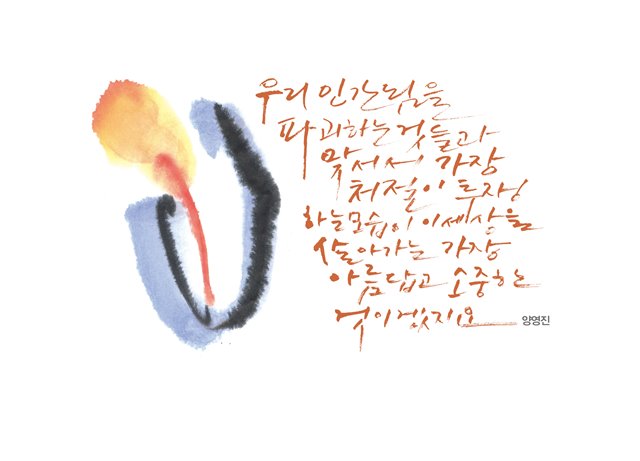 우리 인간됨을
파괴하는 것들과
맞서서 가장
처절이 투쟁
하는 모습이 이 세상을
살아가는 가장
아름답고 소중한
것이겠지요
양영진